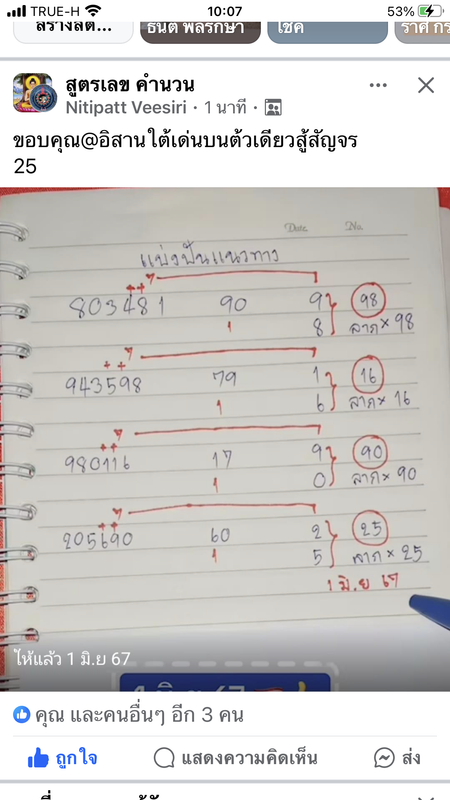 TRUE-H 10:07 53%
สร้างสต... ธนต์ พลรักษา โชค ราศี กร
สูตรเลข คำนวน
Nitipatt Veesiri · 1 นาที ·
ขอบคุณ@อิสานใต้เด่นบนตัวเดียวสู้สัญจร
25
Date No.
แบ่งปันแนวทาง
803481 90 9 98
1 8 ลาภ × 98
943598 79 1 16
1 6 ลาภ × 16
980116 17 9 90
1 0 ลาภ × 90
205690 60 2 25
1 5 ลาภ × 25
1 มิ.ย 67
ให้แล้ว 1 มิ.ย 67
คุณ และคนอื่นๆ อีก 3 คน
ถูกใจ แสดงความคิดเห็น ส่ง